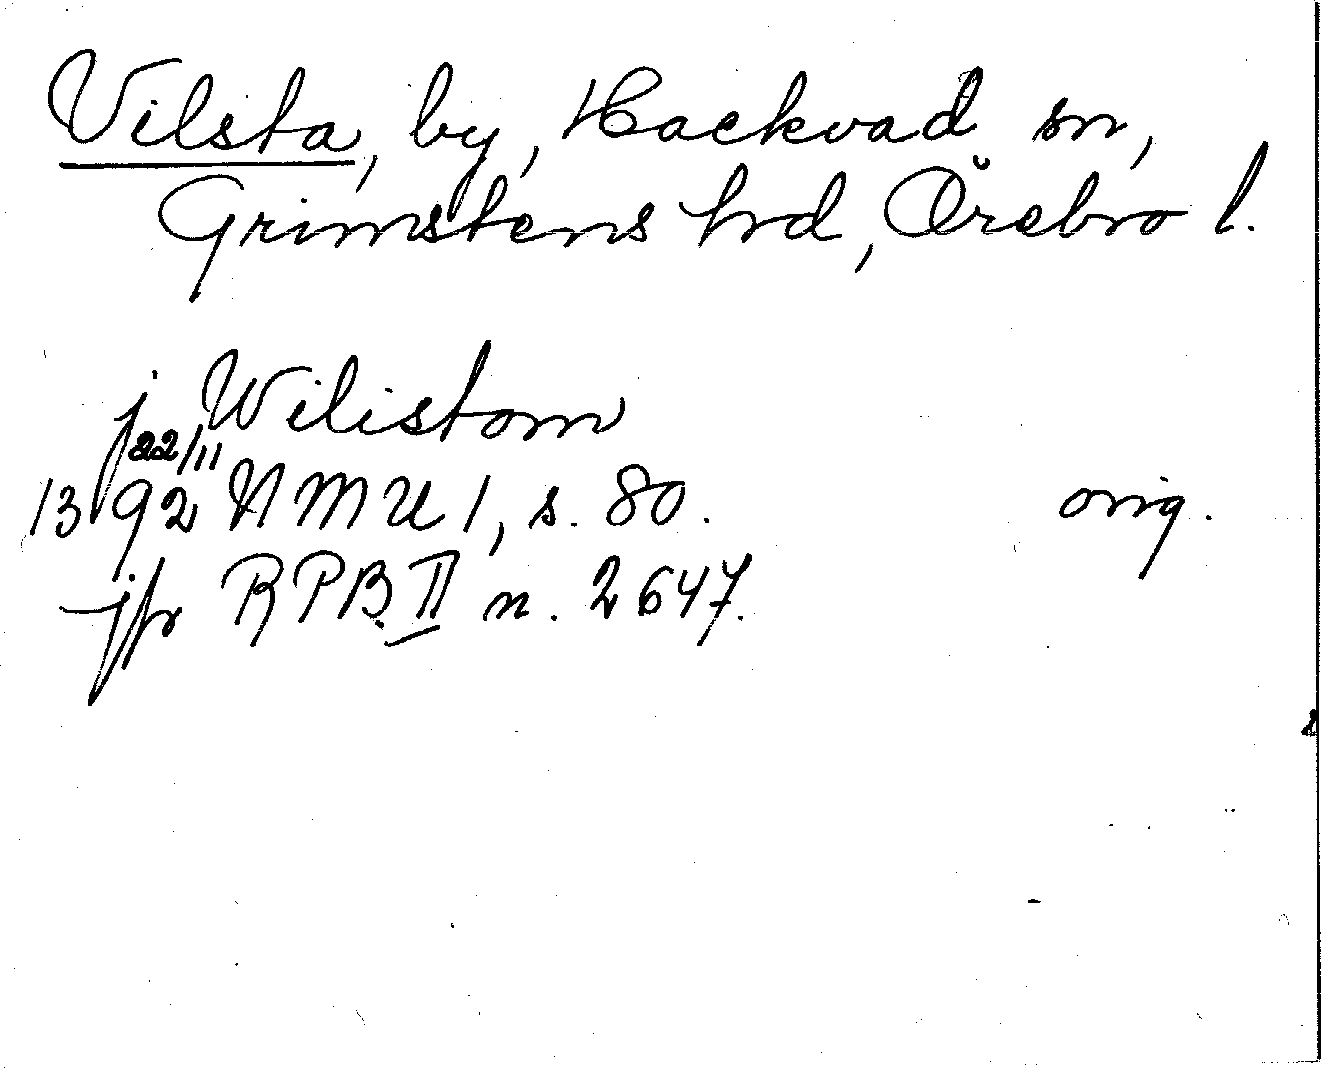 Vilsta, by, Hackvad sn,
Grimstens hrd, Örebro l.
j Wilistom
22/11
1392 NMU 1, s. 80. orig.
jfr RPB II n. 2647.